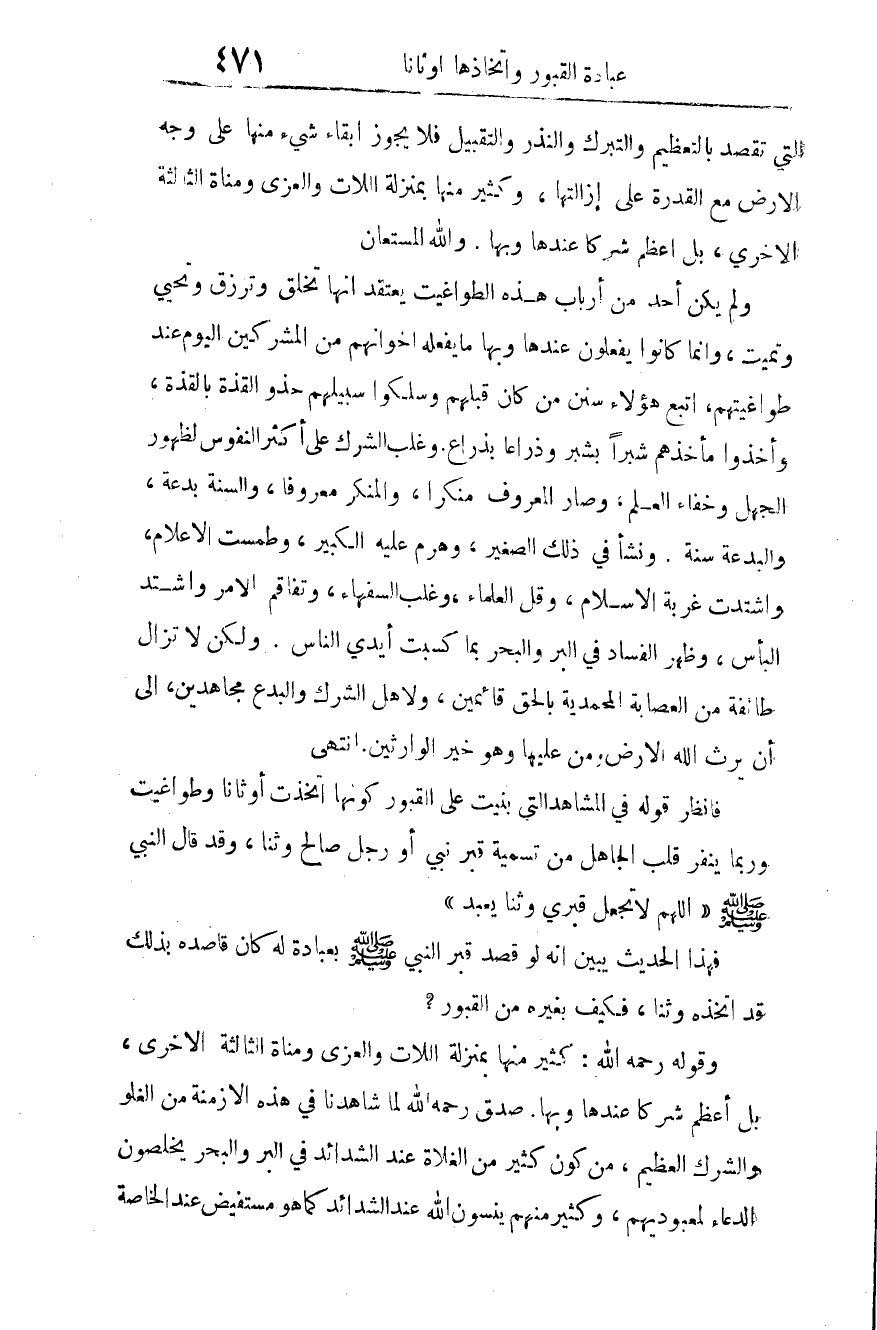 عبادة القبور واتخاذها اوثانا ٤٧١
التي تقصد بالتعظيم والتبرك والنذر والتقبيل فلا يجوز ابقاء شيء منها على وجه
الارض مع القدرة على إزالتها ، وكثير منها بمنزلة اللات والعزى ومناة الثالثة
الاخري ، بل اعظم شركا عندها وبها . والله المستعان
ولم يكن أحد من أرباب هـذه الطواغيت يعتقد انها تخلق وترزق وتحيي
وتميت ، وانما كانوا يفعلون عندها وبها ما يفعله اخوانهم من المشركين اليوم عند
طواغيتهم، اتبع هؤلاء سنن من كان قبلهم وسلكوا سبيلهم حذو القذة بالقذة ،
وأخذوا مأخذهم شبراً بشبر وذراعا بذراع. وغلب الشرك على أكثر النفوس لظهور
الجهل وخفاء العـلم ، وصار المعروف منكرا ، والمنكر معروفا ، والسنة بدعة ،
والبدعة سنة . ونشأ في ذلك الصغير ، وهرم عليه الكبير ، وطمست الاعلام،
واشتدت غربة الاسـلام ، وقل العلماء ، وغلب السفهاء ، وتفاقم الامر واشـتد
البأس ، وظهر الفساد في البر والبحر بما كسبت أيدي الناس . ولكن لا تزال
طائفة من العصابة المحمدية بالحق قائمين ، ولاهل الشرك والبدع مجاهدين، الى
أن يرث الله الارض ومن عليها وهو خير الوارثين. انتهى
فانظر قوله في المشاهد التي بنيت على القبور كونها اتخذت أوثانا وطواغيت
وربما ينفر قلب الجاهل من تسمية قبر نبي أو رجل صالح وثنا ، وقد قال النبي
ﷺ « اللهم لا تجعل قبري وثنا يعبد »
فهذا الحديث يبين انه لو قصد قبر النبي ﷺ بعبادة له كان قاصده بذلك
قد اتخذه وثنا ، فكيف بغيره من القبور ?
وقوله رحمه الله : كثير منها بمنزلة اللات والعزى ومناة الثالثة الاخرى ،
بل أعظم شركا عندها وبها. صدق رحمه الله لما شاهدنا في هذه الازمنة من الغلو
والشرك العظيم ، من كون كثير من الغلاة عند الشدائد في البر والبحر يخلصون
الدعاء لمعبوديهم ، وكثير منهم ينسون الله عند الشدائد كما هو مستفيض عند الخاصة